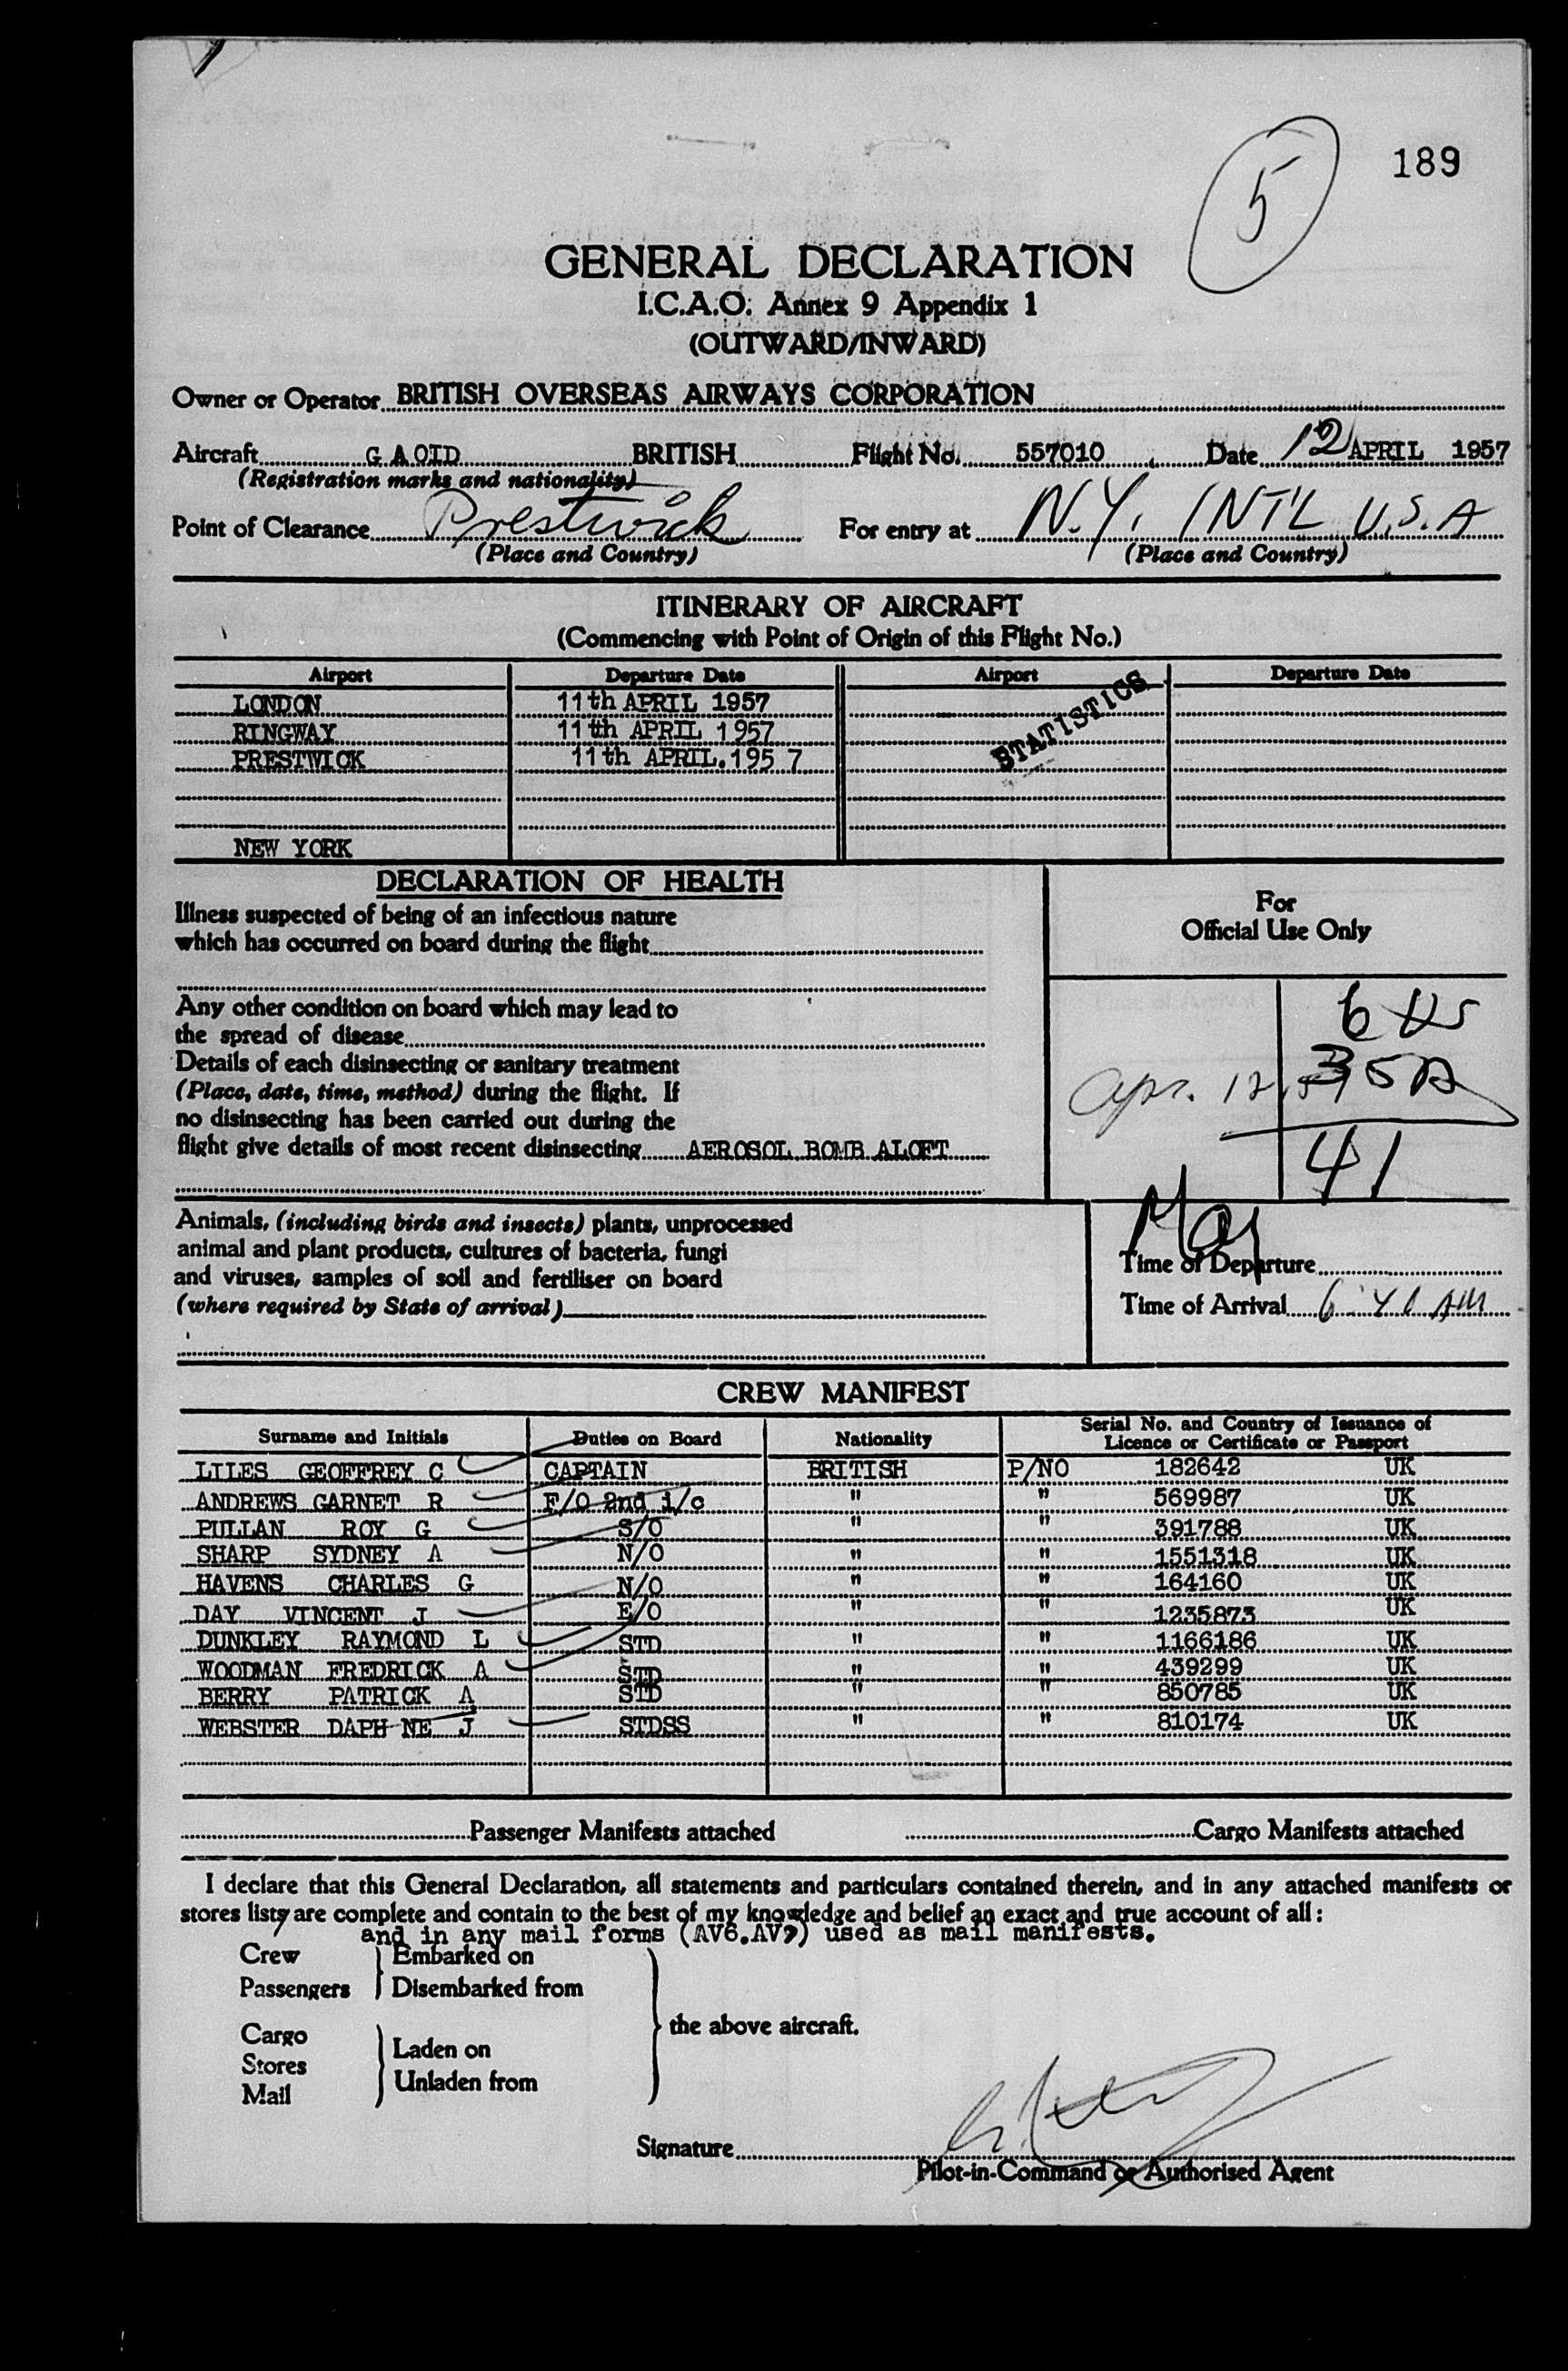 5
189
GENERAL DECLARATION
I.C.A.O. Annex 9 Appendix 1
(OUTWARD/INWARD)
Owner or Operator BRITISH OVERSEAS AIRWAYS CORPORATION
Aircraft G AOID BRITISH Flight No. 557010 Date 12 APRIL 1957
(Registration marks and nationality)
Point of Clearance Prestwick For entry at N.Y. INT'L U.S.A
(Place and Country) (Place and Country)
ITINERARY OF AIRCRAFT
(Commencing with Point of Origin of this Flight No.)
Airport Departure Date Airport Departure Date
LONDON 11th APRIL 1957
RINGWAY 11th APRIL 1957
PRESTWICK 11th APRIL.195 7
STATISTICS
NEW YORK
DECLARATION OF HEALTH
Illness suspected of being of an infectious nature
which has occurred on board during the flight
Any other condition on board which may lead to
the spread of disease
Details of each disinsecting or sanitary treatment
(Place, date, time, method) during the flight. If
no disinsecting has been carried out during the
flight give details of most recent disinsecting AEROSOL BOMB ALOFT
For
Official Use Only
6 US
35 A
Apr. 12, 57
41
Animals, (including birds and insects) plants, unprocessed
animal and plant products, cultures of bacteria, fungi
and viruses, samples of soil and fertiliser on board
(where required by State of arrival)
Time of Departure
Time of Arrival 6 41 AM
CREW MANIFEST
Surname and Initials Duties on Board Nationality Serial No. and Country of Issuance of
Licence or Certificate or Passport
LILES GEOFFREY C CAPTAIN BRITISH P/NO 182642 UK
ANDREWS GARNET R F/O 2nd i/c " " 569987 UK
PULLAN ROY G S/O " " 391788 UK
SHARP SYDNEY A N/O " " 1551318 UK
HAVENS CHARLES G N/O " " 164160 UK
DAY VINCENT J E/O " " 1235873 UK
DUNKLEY RAYMOND L STD " " 1166186 UK
WOODMAN FREDRICK A STD " " 439299 UK
BERRY PATRICK A STD " " 850785 UK
WEBSTER DAPH NE J STDSS " " 810174 UK
Passenger Manifests attached Cargo Manifests attached
I declare that this General Declaration, all statements and particulars contained therein, and in any attached manifests or
stores lists are complete and contain to the best of my knowledge and belief an exact and true account of all:
and in any mail forms (AV6.AV7) used as mail manifests.
Crew Embarked on
Passengers Disembarked from
the above aircraft.
Cargo
Stores Laden on
Mail Unladen from
Signature
Pilot-in-Command or Authorised Agent